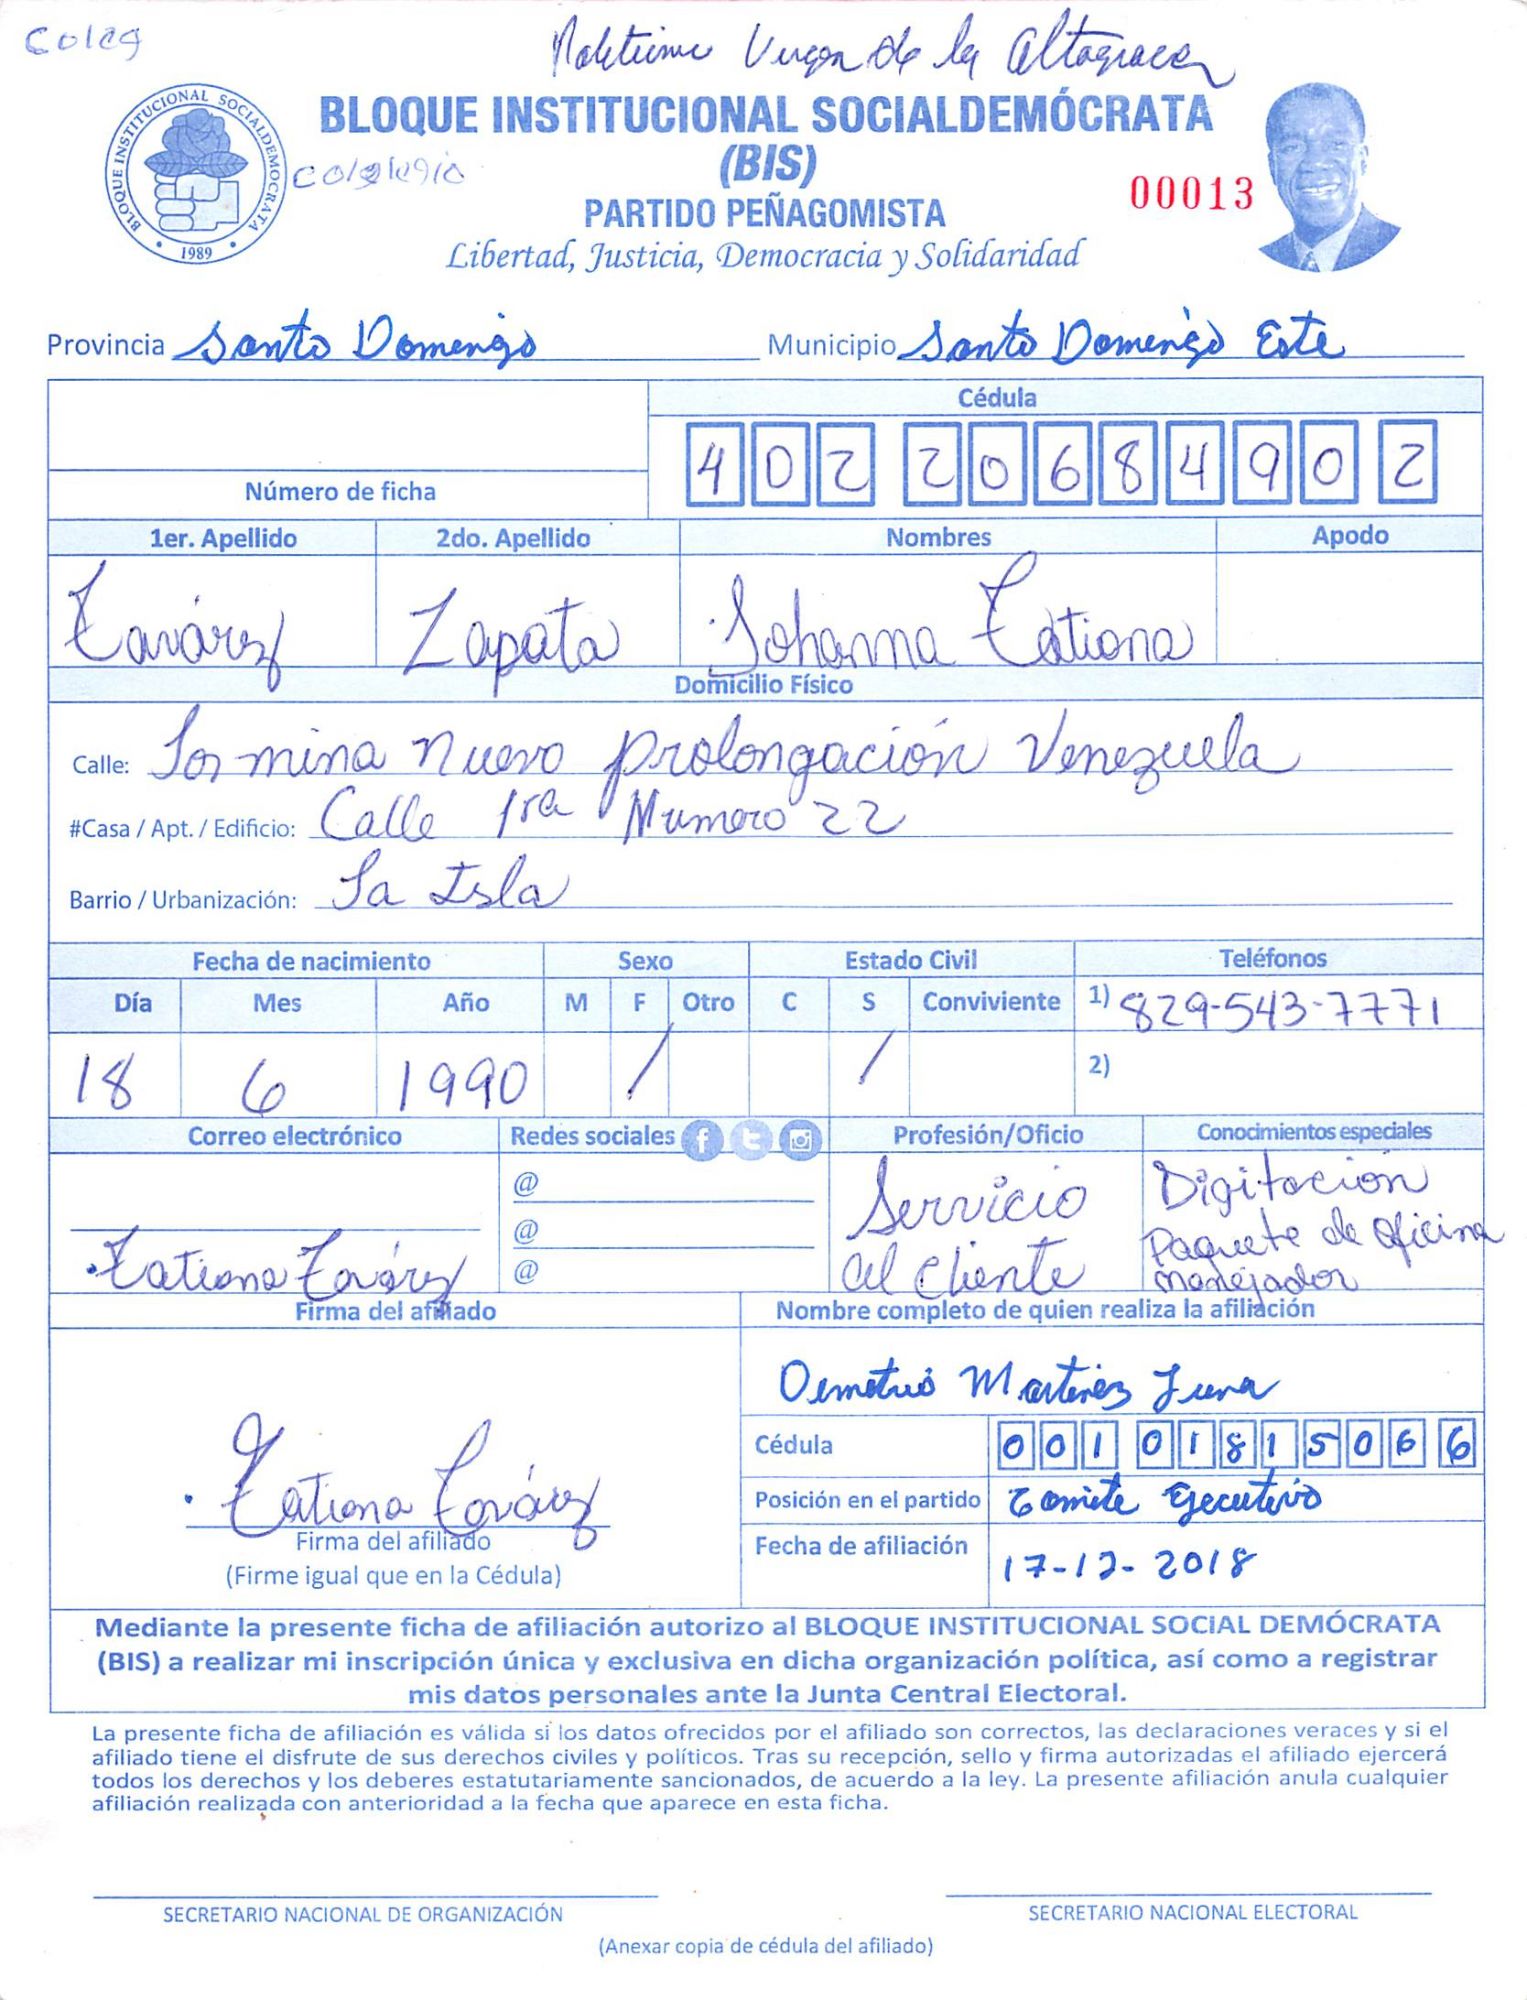 Coleg
Virgen de la Altagracia
BLOQUE INSTITUCIONAL SOCIALDEMÓCRATA
BLOQUE INSTITUCIONAL SOCIALDEMOCRATA
1989
(BIS)
PARTIDO PEÑAGOMISTA
00013
Libertad, Justicia, Democracia y Solidaridad
Provincia Santo Domingo Municipio Santo Domingo Este
Cédula
402 2068490 2
Número de ficha
1er. Apellido 2do. Apellido Nombres Apodo
Tavárez Zapata Johanna Tatiana
Domicilio Físico
Calle: Los mina nuevo prolongación Venezuela
#Casa / Apt. / Edificio: Calle 1ra Numero 22
Barrio / Urbanización: La Isla
Fecha de nacimiento Sexo Estado Civil Teléfonos
Día Mes Año M F Otro C S Conviviente 1) 829-543-7771
18 6 1990 / / 2)
Correo electrónico Redes sociales Profesión/Oficio Conocimientos especiales
@ Servicio Digitación
@ al cliente Paquete de oficina
Tatiana Tavárez @ manejador
Firma del afiliado Nombre completo de quien realiza la afiliación
Demetrio Martinez Luna
Cédula 001 0181506 6
Tatiana Tavárez
Posición en el partido Comite Ejecutivo
Firma del afiliado
(Firme igual que en la Cédula)
Fecha de afiliación 17-12-2018
Mediante la presente ficha de afiliación autorizo al BLOQUE INSTITUCIONAL SOCIAL DEMÓCRATA
(BIS) a realizar mi inscripción única y exclusiva en dicha organización política, así como a registrar
mis datos personales ante la Junta Central Electoral.
La presente ficha de afiliación es válida si los datos ofrecidos por el afiliado son correctos, las declaraciones veraces y si el
afiliado tiene el disfrute de sus derechos civiles y políticos. Tras su recepción, sello y firma autorizadas el afiliado ejercerá
todos los derechos y los deberes estatutariamente sancionados, de acuerdo a la ley. La presente afiliación anula cualquier
afiliación realizada con anterioridad a la fecha que aparece en esta ficha.
SECRETARIO NACIONAL DE ORGANIZACIÓN SECRETARIO NACIONAL ELECTORAL
(Anexar copia de cédula del afiliado)